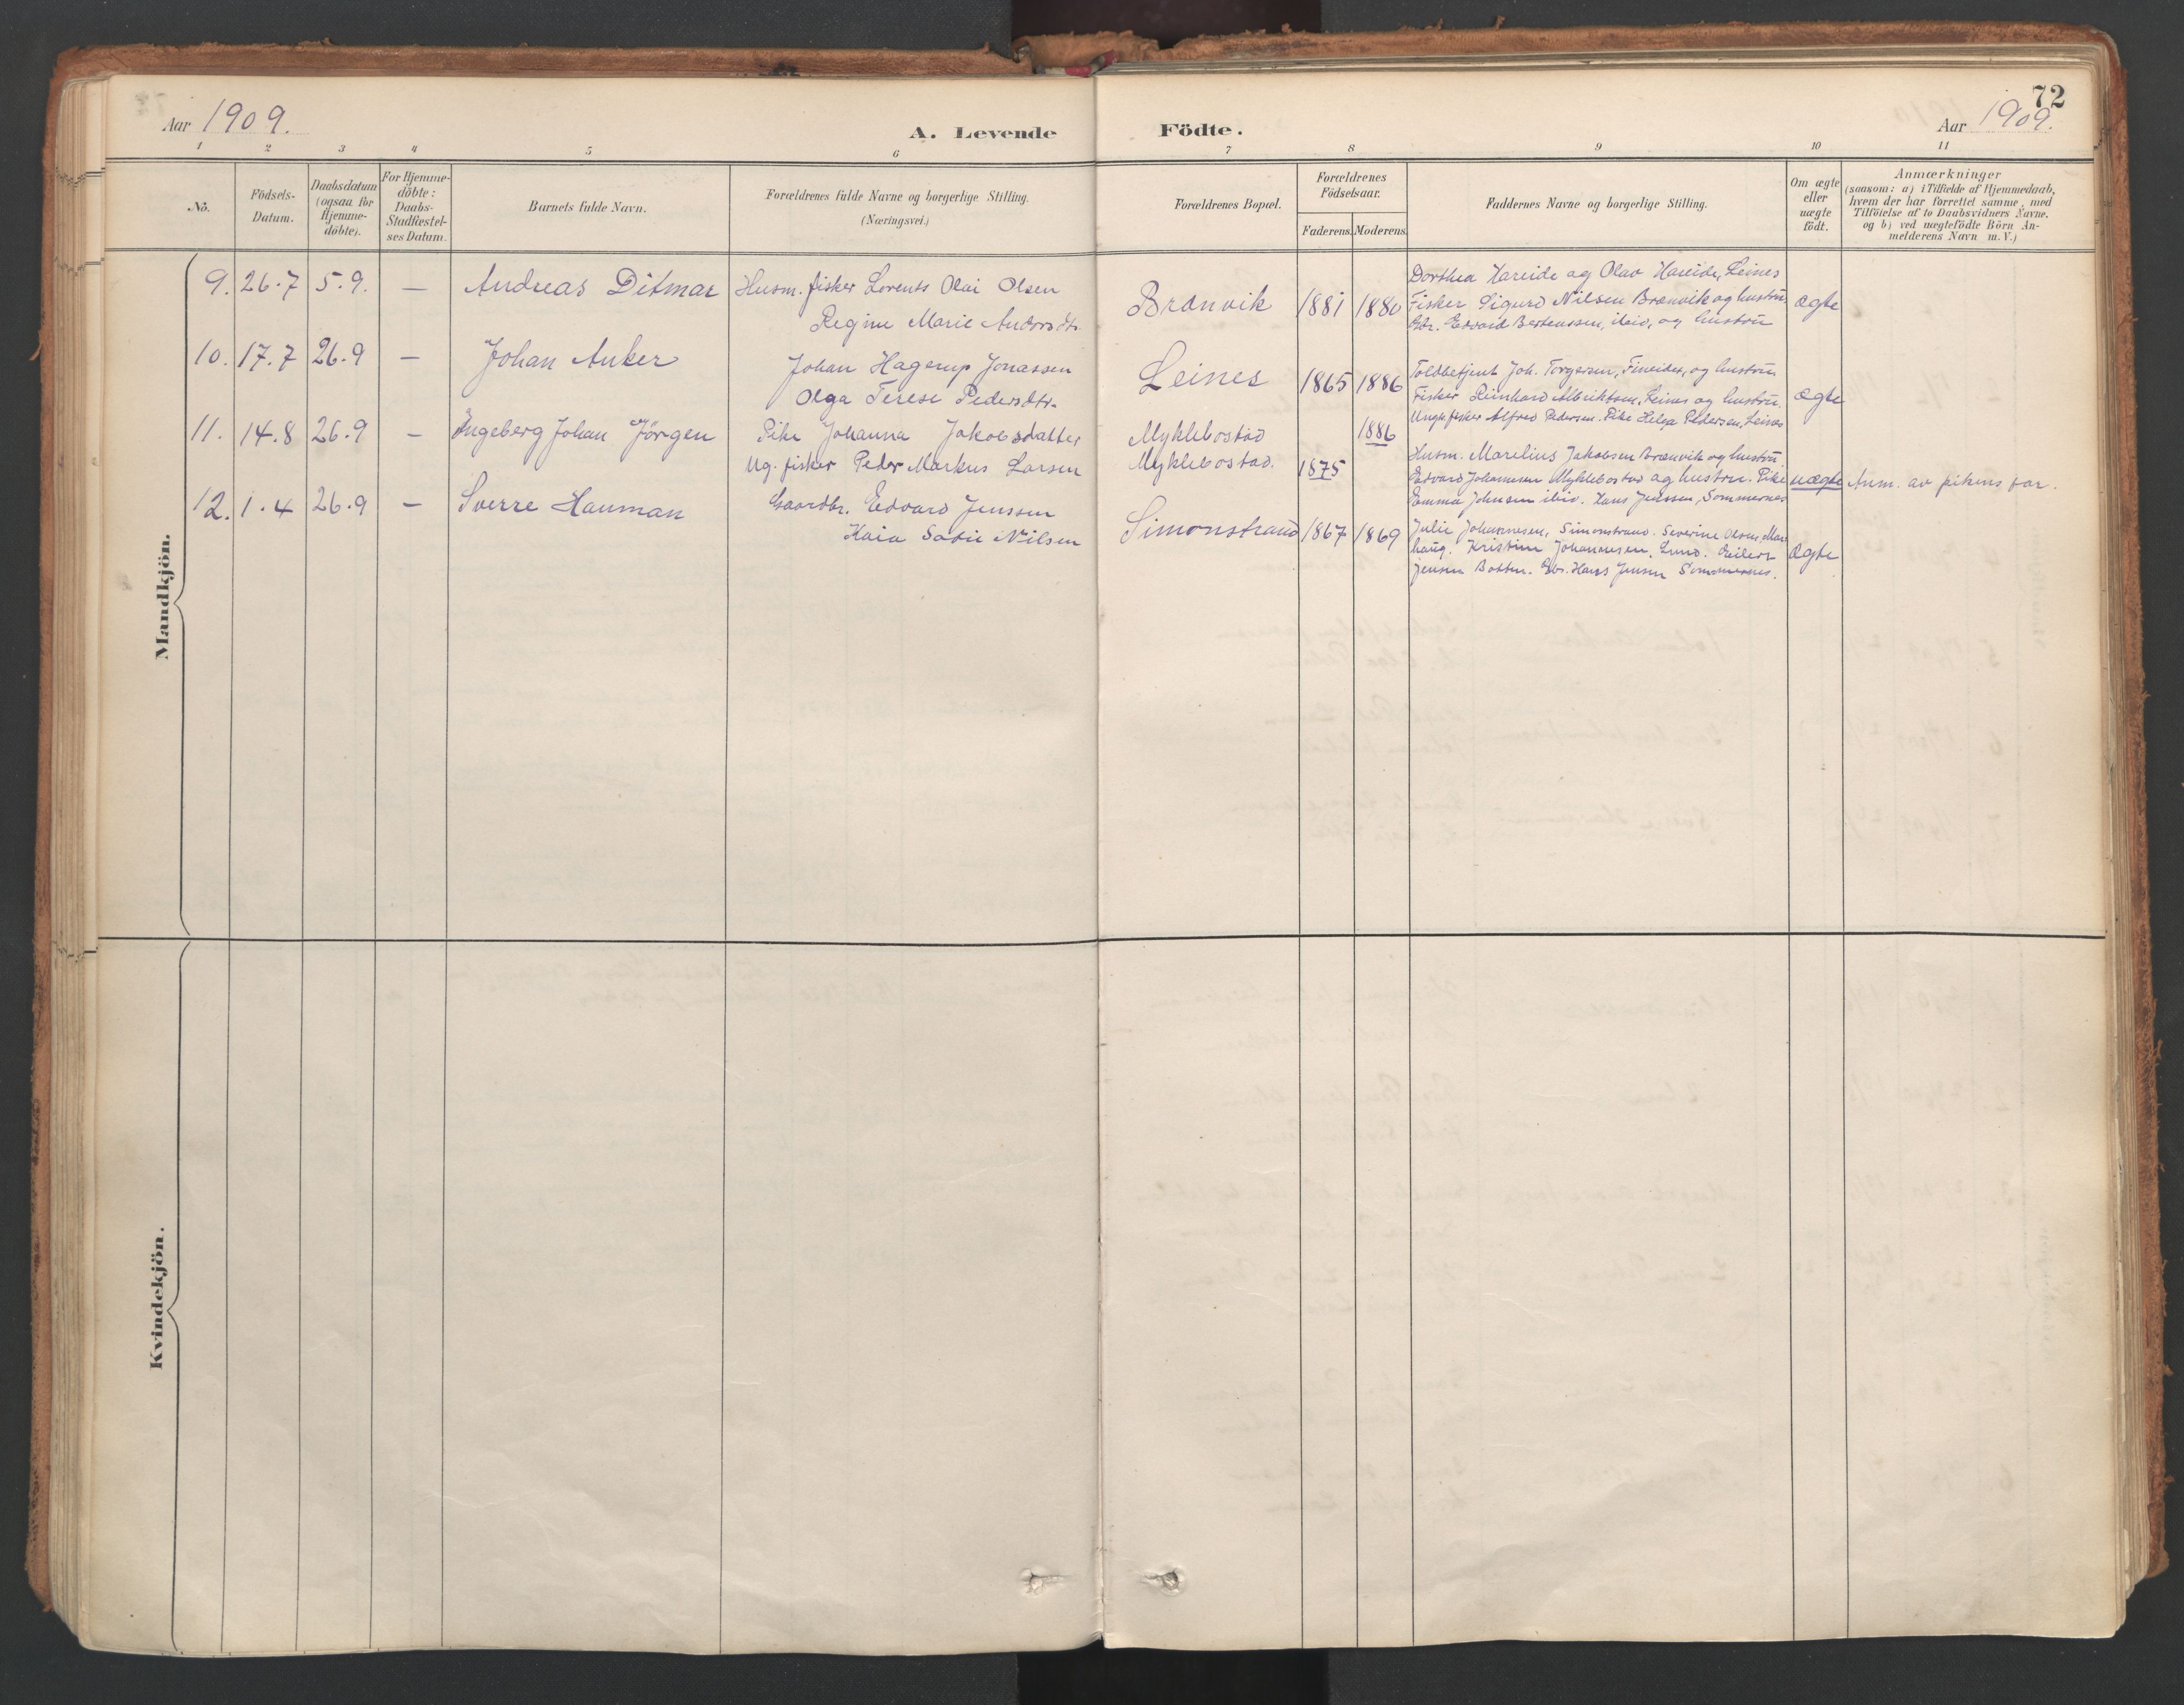 72
Aar 1909.
A. Levende Födte.
Aar 1909.
1 2 3 4 5 6 7 8 9 10 11
No.
Födsels-Datum.
Daabsdatum (ogsaa for Hjemme-döbte).
For Hjemme-döbte: Daabs-Stadfæstel-ses Datum.
Barnets fulde Navn.
Forældrenes fulde Navne og borgerlige Stilling.
(Næringsvei.)
Forældrenes Bopæl.
Forældrenes Födselsaar.
Faderens. Moderens.
Faddernes Navne og borgerlige Stilling.
Om ægte eller uægte födt.
Anmærkninger
(saasom: a) i Tilfælde af Hjemmedaab,
hvem der har forrettet samme, med
Tilföielse af to Daabsvidners Navne.
og b) ved uægtefödte Börn An-
melderens Navn m. V.)
Mandkjön.
9. 26.7 5.9. — Andreas Ditmar
Husm. fisker Lorents Olai Olsen
Regine Marie Andersdtr.
Brænvik 1881 1880
Dorthea Hareide og Olav Hareide, Leines
Fisker Sigurd Nilsen Brænvik og hustru
Gbr. Edvard Bertenssen, ibid, og hustru
ægte
10. 17.7 26.9 — Johan Anker
Johan Hagerup Jonassen
Olga Terese Pedersdtr.
Leines 1865 1886
Toldbetjent Joh. Torgersen, Fineidet, og hustru
Fisker Reinhard Albriktsen, Leines og hustru.
Ungk. fisker Alfred Pedersen. Pike Helga Pedersen, Leines
ægte
11. 14.8 26.9 — Ingeberg Johan Jörgen
Pike Johanna Jakobsdatter
Ug. fisker Peder Markus Larsen
Myklebostad 1886
Myklebostad. 1875
Husm. Marelius Jakobsen Brænvik og hustru
Edvard Johannesen Myklebostad og hustru. Pike
Emma Johnsen ibid. Hans Jenssen, Sommernes
uægte Anm. av pikens far.
12. 1.4 26.9 — Sverre Hauman
Gaardbr. Edvard Jenssen
Kaia Sofie Nilsen
Simonstrand 1867 1869
Julie Johannesen, Simonstrand. Severine Olsen,
haug. Kristine Johannesen, Lund. Eilert
Jensen Botten. Gbr. Hans Jensen Sommernes.
Ægte
Kvindekjön.